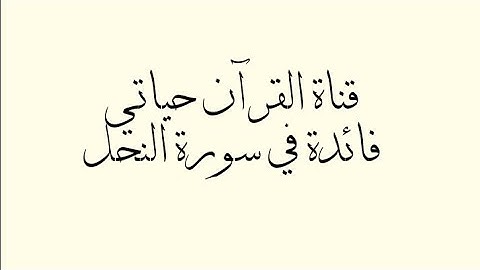 قناة القرآن حياتي
فائدة في سورة النحل